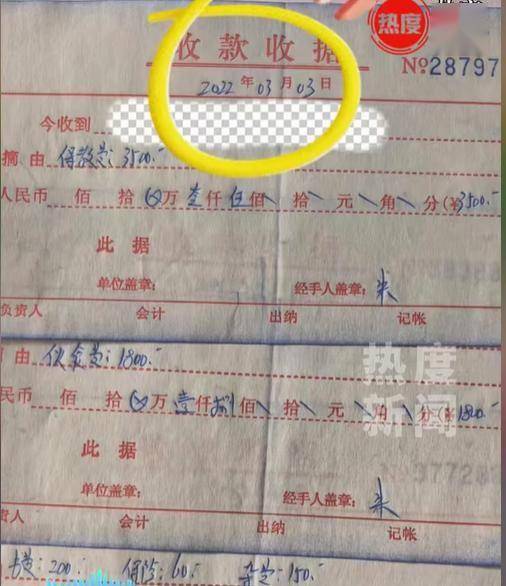 热度
收款收据
№28797
2022年03月03日
今收到
摘由 保教费:3500.-
人民币 佰 拾 万 仟伍佰 拾 元 角 分(¥3500.-
此据
单位盖章: 经手人盖章: 朱
负责人 会计 出纳 记帐
由 伙食费:1800.-
民币 佰 拾 万 壹仟捌佰 拾 元 角 分(¥1800.-
热度
新闻
此据
单位盖章: 经手人盖章: 朱
责人 会计 出纳 记帐
费:200.- 保险:60.- 杂费:150.-